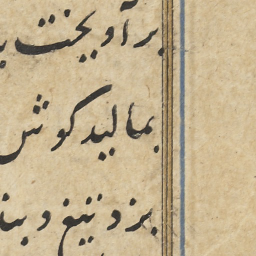 برآویخت
بمالید گوش
بزد تیغ و